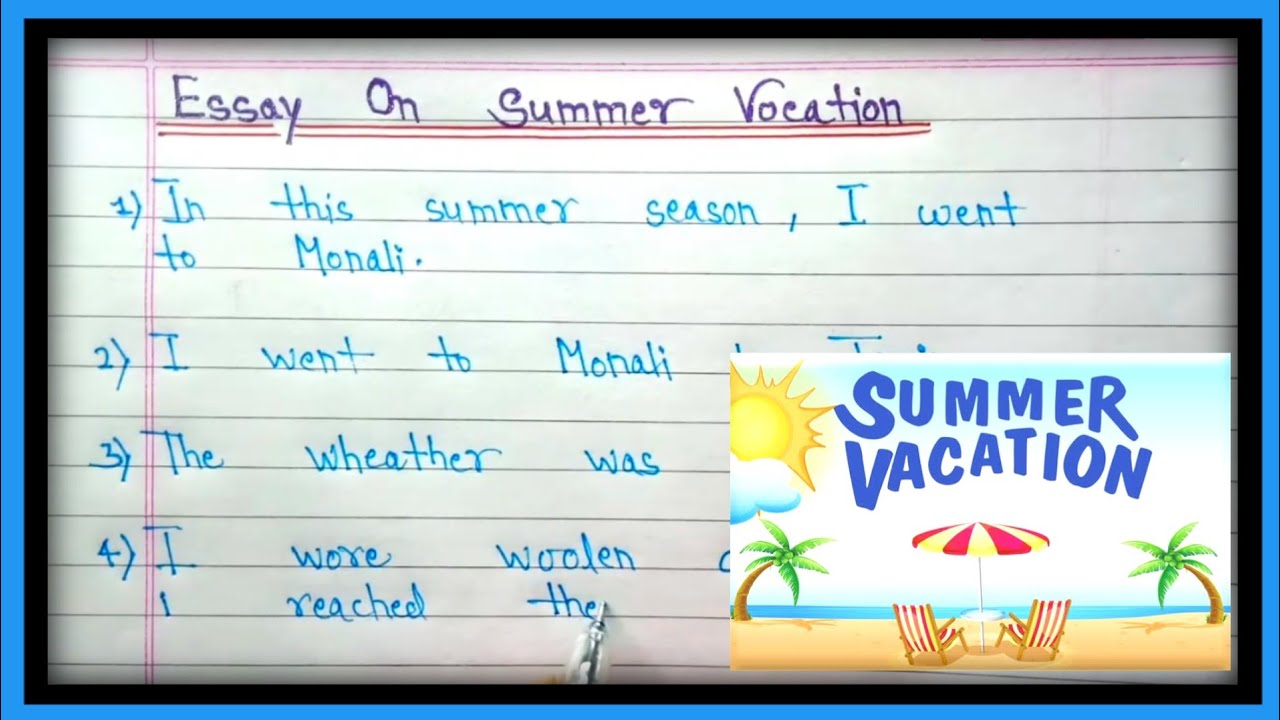 Essay On Summer Vocation
1) In this summer season, I went
to Monali.
2) I went to Monali
3) The wheather was
4) I wore woolen
I reached the
SUMMER
VACATION